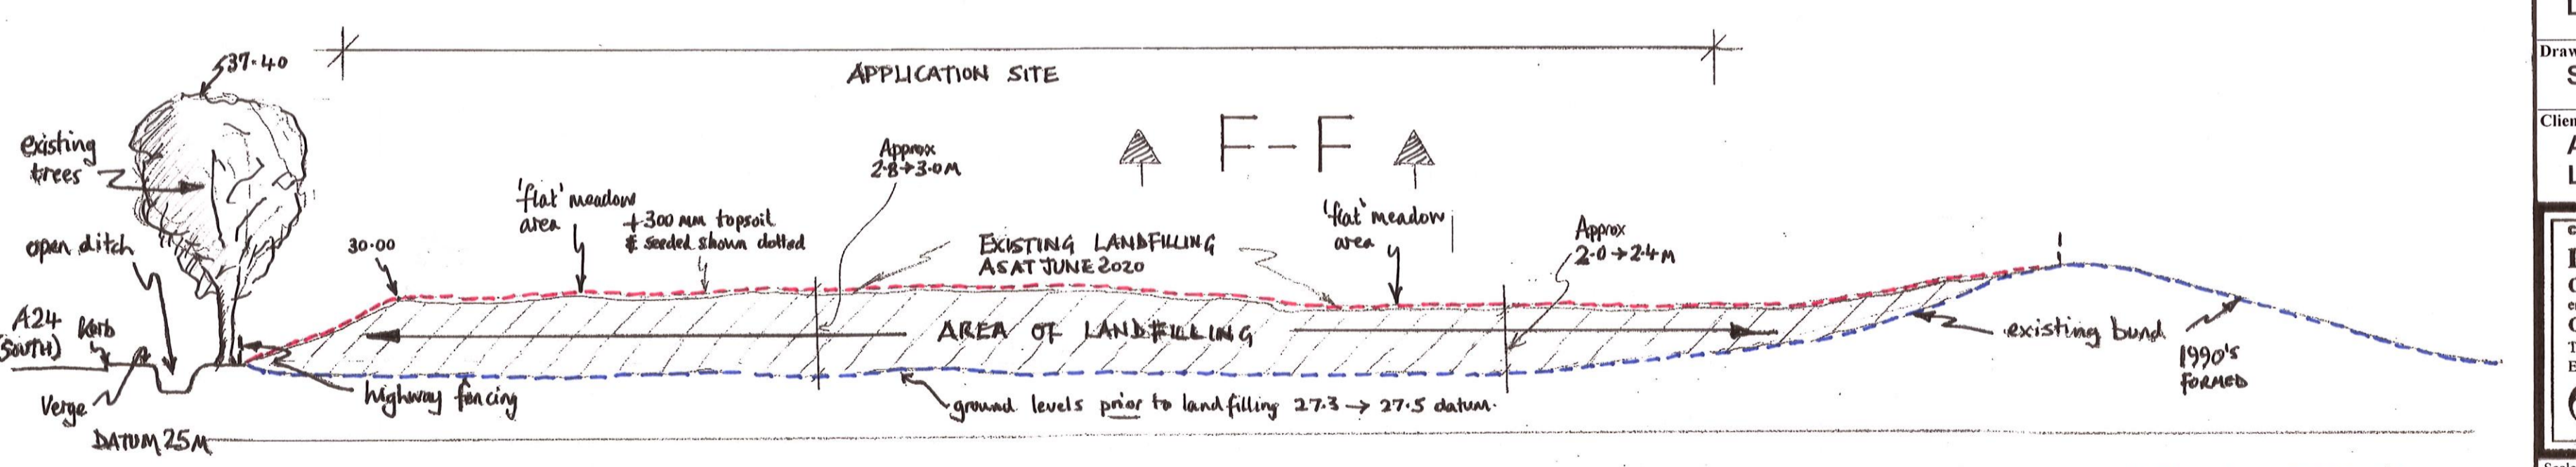 37.40
APPLICATION SITE
existing
trees
Approx
2.8→3.0M
F-F
'flat' meadow
area
+300 mm topsoil
& seeded shown dotted
'flat' meadow
area
Approx
2.0→2.4M
open ditch
30.00
EXISTING LANDFILLING
AS AT JUNE 2020
A24
(SOUTH)
kerb
AREA OF LANDFILLING
existing bund
1990's
FORMED
Verge
highway fencing
ground levels prior to landfilling 27.3 → 27.5 datum.
DATUM 25M
Draw
Clien